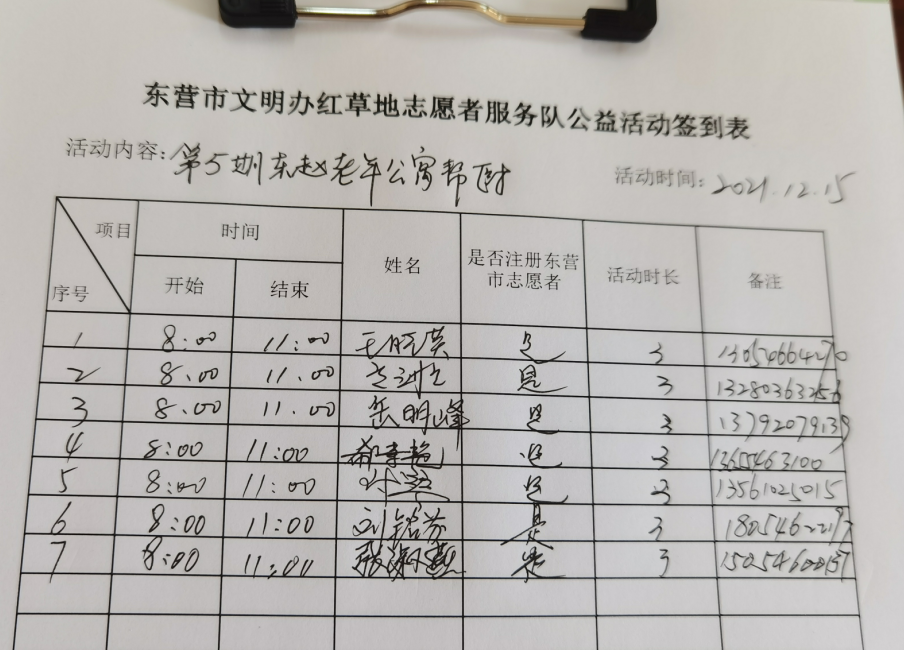 东营市文明办红草地志愿者服务队公益活动签到表
活动内容：第5期东赵老年公寓帮厨 活动时间：2021.12.15
项目 时间 姓名 是否注册东营市志愿者 活动时长 备注
序号 开始 结束
1 8:00 11:00 是 3 13054664270
2 8.00 11.00 是 3 13280363256
3 8.00 11.00 岳明峰 是 3 13792079139
4 8:00 11:00 是 3
5 8:00 11:00 是 3 13561025015
6 8:00 11:00 是 3
7 8:00 11:00 是 3